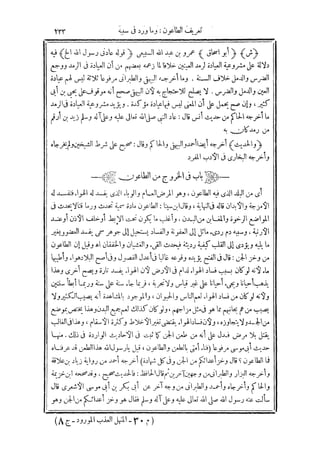 تعريف الطاعون: وما ورد فى سببه ٢٣٣
﴿ش﴾ ﴿أبو اسحاق﴾ عمرو بن عبد الله السبيعى ﴿قوله عادنى رسول الله الخ﴾ فيه
دلالة على مشروعية العيادة لرمد العينين خلافا لما زعمه بعضهم من أن العيادة فى الرمد ووجع
الضرس والدمل خلاف السنة . وما أخرجه البيهقى والطبرانى مرفوعا ثلاثة ليس لهم عيادة
العين والدمل والضرس . لا يصلح للاحتجاج به لأن البيهقى صحح أنه موقوف على يحيى بن أبى
كثير ، وإن صح يحمل على أن المعنى ليس فيها عيادة مؤكدة . ويؤيد مشروعية العيادة فى الرمد
ما أخرجه الحاكم من حديث أنس قال : عاد النبى صلى الله تعالى عليه وعلى آله وسلم زيد بن أرقم
من رمد كان به
﴿والحديث﴾ أخرجه أيضا أحمد والبيهقى والحاكم وقال : صحيح على شرط الشيخين ولم يخرجاه
وأخرجه البخارى فى الأدب المفرد
باب فى الخروج من الطاعون
أى من البلد الذى فيه الطاعون ، وهو المرض العام والوباء الذى يفسد له الهواء فتفسد له
الأمزجة والأبدان قاله فى النهاية ، وقال ابن سينا : الطاعون مادة سمية تحدث ورما قتالا يحدث فى
المواضع الرخوة والمغابن من البدن ، وأغلب ما يكون تحت الإبط أو خلف الأذن أو عند
الأرنبة ، وسببه دم ردىء مائل إلى العفونة والفساد يستحيل إلى جوهر سمى يفسد العضو ويغير
ما يليه ويؤدى إلى القلب كيفية رديئة فيحدث القىء والغثيان والخفقان اه وقيل إن الطاعون
من وخز الجن : قال فى الفتح يؤيده وقوعه غالبا فى أعدل الفصول وفى أصح البلاد هواء وأطيبها
ماء لأنه لو كان بسبب فساد الهواء لدام فى الأرض لأن الهواء يفسد تارة ويصح أخرى وهذا
يذهب أحيانا ويجىء أحيانا على غير قياس ولا تجربة ، فربما جاء سنة على سنة وربما أبطأ سنين
ولأنه لو كان من فساد الهواء لعم الناس والحيوان ، والموجود بالمشاهدة أنه يصيب الكثير ولا
يصيب من هم بجانبهم مما هو فى مثل مزاجهم ، ولو كان كذلك لعم جميع البدن وهذا يختص بموضع
من الجسد ولا يتجاوزه ، ولأن فساد الهواء يقتضى تغير الأخلاط وكثرة الأسقام ، وهذا فى الغالب
يقتل بلا مرض فدل على أنه من طعن الجن كما ثبت فى الأحاديث الواردة فى ذلك . منها
حديث أبى موسى مرفوعا ﴿فناء أمتى بالطعن والطاعون ، قيل يا رسول الله هذا الطعن قد عرفناه
فما الطاعون ؟ قال وخز أعدائكم من الجن وفى كل شهادة﴾ أخرجه أحمد من رواية زياد بن علاقة
وأخرجه البزار والطبرانى من وجهين آخرين ثم قال الحافظ : فالحديث صحيح . وقد صححه ابن خزيمة
والحاكم وأخرجاه وأحمد والطبرانى من وجه آخر عن أبى بكر بن أبى موسى الأشعرى قال
سألت عنه رسول الله صلى الله تعالى عليه وعلى آله وسلم فقال هو وخز أعدائكم من الجن وهو
(م ٣٠ - المنهل العذب المورود - ج ٨)